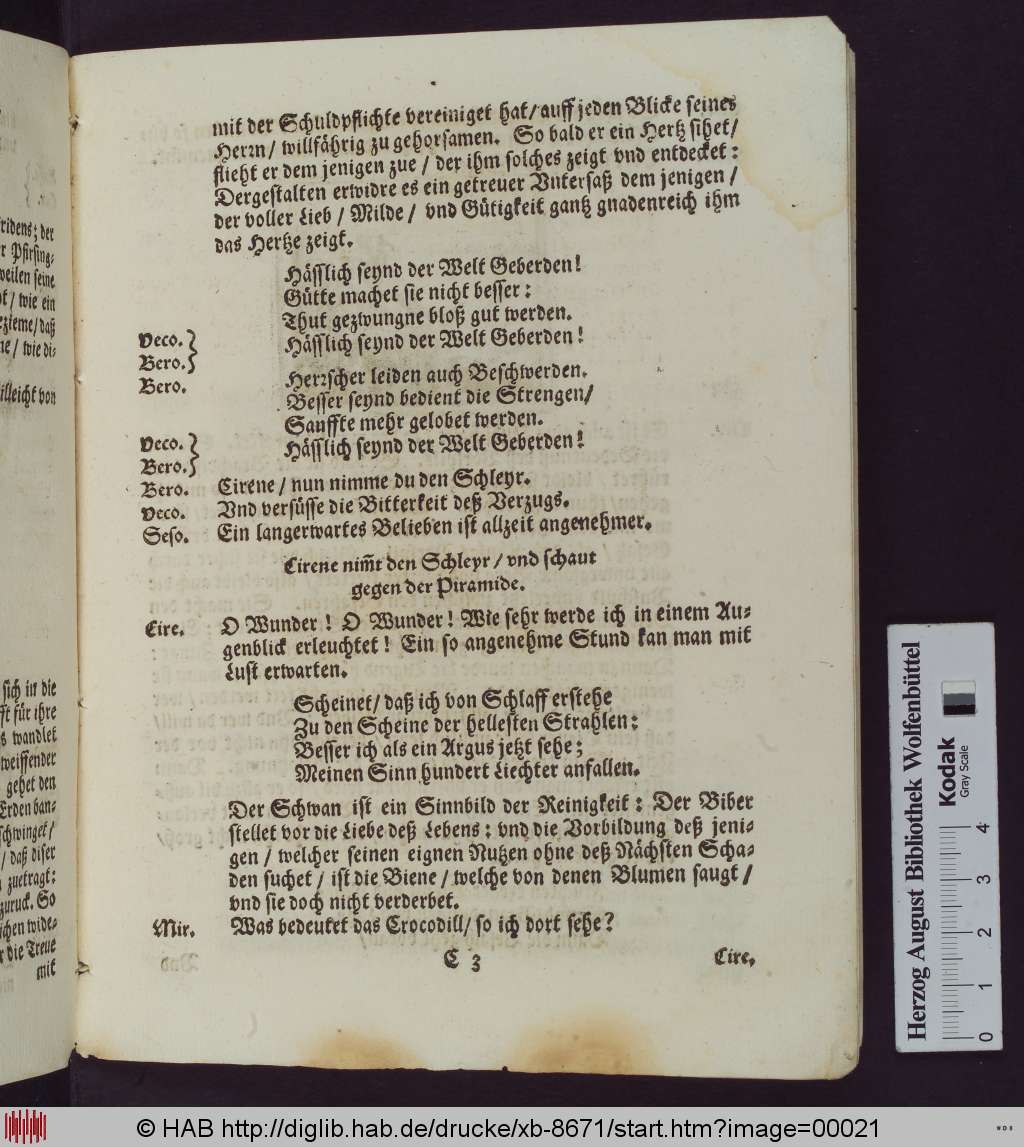 ridens; der
r Pfirsing-
weilen seine
t / wie ein
ezieme / daß
ne / wie di-
illeicht von
sich in die
fft für ihre
s wandlet
weiffender
gehet den
Erden ban-
schwinget /
/ daß diser
zuetragt:
zuruck. So
ichen wide-
r die Treue
mit
mit der Schuldpflichte vereiniget hat / auff jeden Blicke seines
Herrn / willfährig zu gehorsamen. So bald er ein Hertz sihet /
flieht er dem jenigen zue / der ihm solches zeigt vnd entdecket:
Dergestalten erwidre es ein getreuer Vntersaß dem jenigen /
der voller Lieb / Milde / vnd Gütigkeit gantz gnadenreich ihm
das Hertze zeigt.
Hässlich seynd der Welt Geberden!
Gütte machet sie nicht besser:
Thut gezwungne bloß gut werden.
Veco. } Hässlich seynd der Welt Geberden!
Bero. }
Bero. Herrscher leiden auch Beschwerden.
Besser seynd bedient die Strengen /
Sauffte mehr gelobet werden.
Veco. } Hässlich seynd der Welt Geberden!
Bero. }
Bero. Cirene / nun nimme du den Schleyr.
Veco. Vnd versüsse die Bitterkeit deß Verzugs.
Seso. Ein langerwartes Belieben ist allzeit angenehmer.
Cirene nim̃t den Schleyr / vnd schaut
gegen der Piramide.
Cire. O Wunder! O Wunder! Wie sehr werde ich in einem Au-
genblick erleuchtet! Ein so angenehme Stund kan man mit
Lust erwarten.
Scheinet / daß ich von Schlaff erstehe
Zu den Scheine der hellesten Strahlen:
Besser ich als ein Argus jetzt sehe;
Meinen Sinn hundert Liechter anfallen.
Der Schwan ist ein Sinnbild der Reinigkeit: Der Biber
stellet vor die Liebe deß Lebens: vnd die Vorbildung deß jeni-
gen / welcher seinen eignen Nutzen ohne deß Nächsten Scha-
den suchet / ist die Biene / welche von denen Blumen saugt /
vnd sie doch nicht verderbet.
Mir. Was bedeutet das Crocodill / so ich dort sehe?
C 3 Cire.
Herzog August Bibliothek Wolfenbüttel
Kodak
Gray Scale
0 1 2 3 4
© HAB http://diglib.hab.de/drucke/xb-8671/start.htm?image=00021